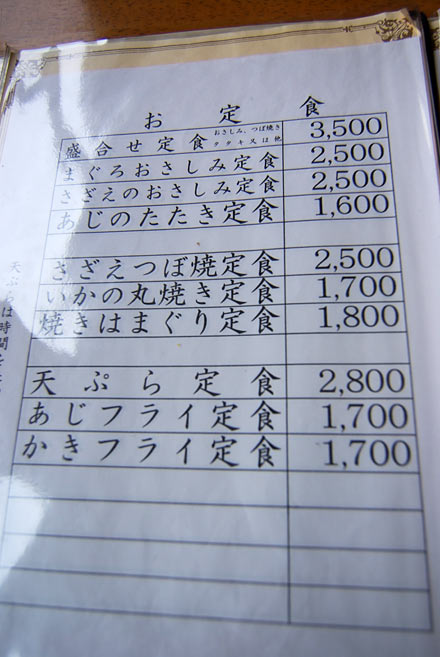 お定食
盛合せ定食 おさしみ、つぼ焼き タタキ又は他 3,500
まぐろおさしみ定食 2,500
さざえのおさしみ定食 2,500
あじのたたき定食 1,600
さざえつぼ焼定食 2,500
いかの丸焼き定食 1,700
焼きはまぐり定食 1,800
天ぷら定食 2,800
あじフライ定食 1,700
かきフライ定食 1,700
天ぷらは時間